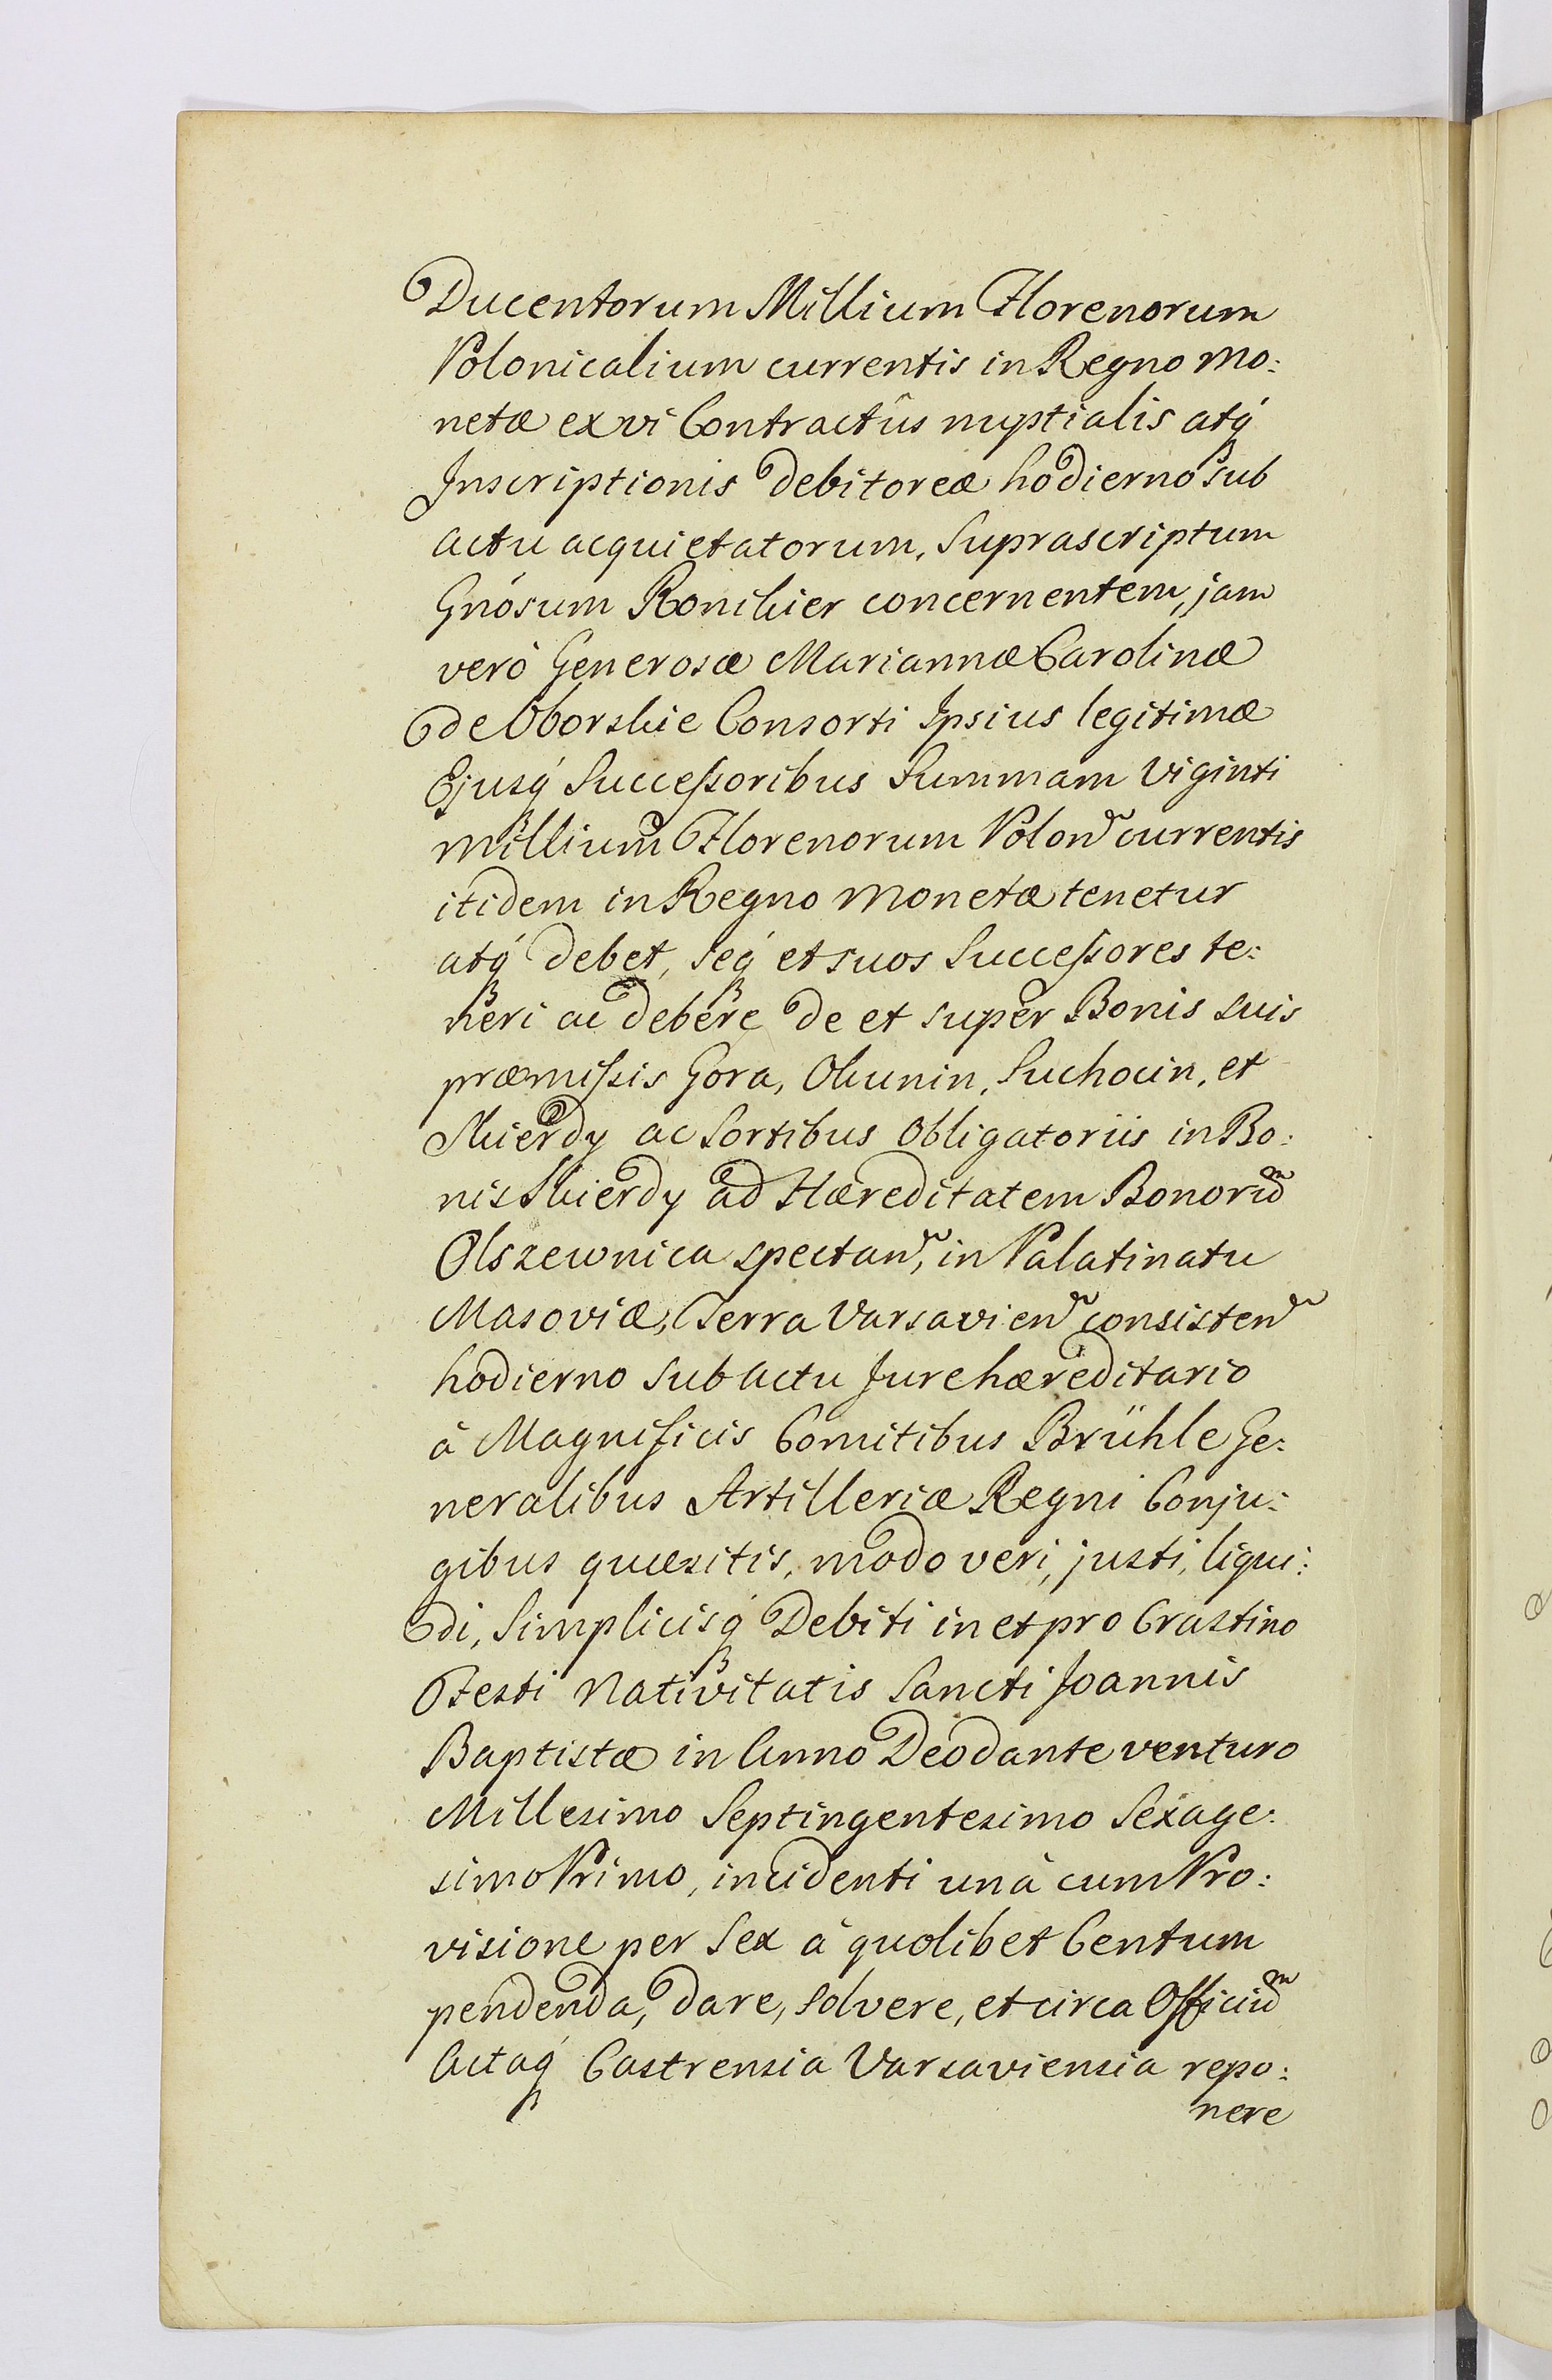 Ducentorum Millium Florenorum
Polonicalium currentis in Regno mo:
netæ ex vi Contractûs nuptialis atq́
Inscriptionis debitoreæ hodierno sub
actu acquietatorum, Suprascriptum
Gnósum Ronikier concernentem, jam
verò Generosæ Mariannæ Carolinæ
de Oborskie Consorti Ipsius legitimæ
Ejusq́ Successoribus Summam viginti
millium Florenorum Polon currentis
itidem in Regno monetæ tenetur
atq́ debet, seq́ et suos Successores te:
neri ac debere de et super Bonis suis
præmissis Gora, Okunin, Suchocin, et
Skierdy ac Sortibus Obligatoriis in Bo:
nis Skierdy ad Hæreditatem Bonorum̃
Olszewnica spectan, in Palatinatu
Masoviæ, Terra Varsavien consisten
hodierno sub actu Jure hæreditario
à Magnificis Comitibus Brühle Ge:
neralibus Artilleriæ Regni Conju:
gibus quæsitis, modo veri, justi, liqui:
di, Simplicisq́ Debiti in et pro Crastino
Festi Nativitatis Sancti Joannis
Baptistæ in Anno Deo dante venturo
Millesimo Septingentesimo Sexage:
simo Primo, incidenti unà cum Pro:
visione per Sex à quolibet Centum
pendenda, dare, solvere, et circa Officiũ
Actaq́ Castrensia Varsaviensia repo:
nere